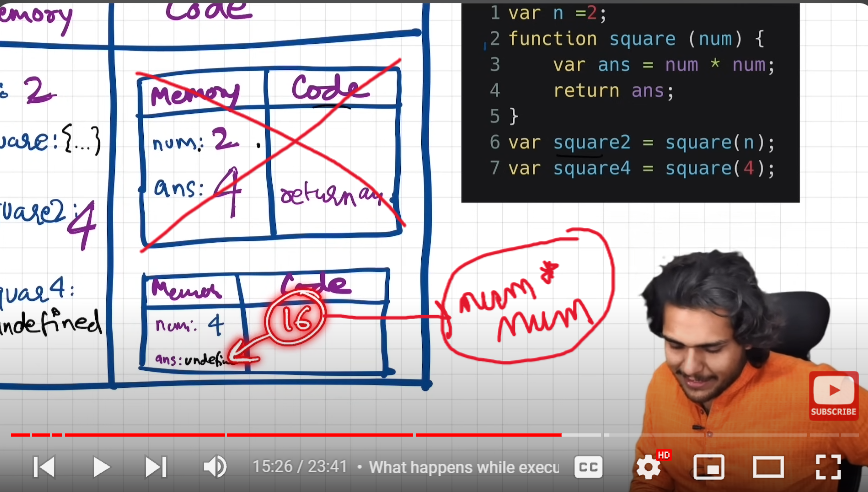 emory
Code
: 2
uare:{...}
uare2:
4
quar4:
undefined
Memory
Code
num: 2
ans: 4
return an
Memor
Code
num: 4
ans: undefin
16
num *
num
1 var n =2;
2 function square (num) {
3 var ans = num * num;
4 return ans;
5 }
6 var square2 = square(n);
7 var square4 = square(4);
SUBSCRIBE
15:26 / 23:41 • What happens while execu
CC
HD